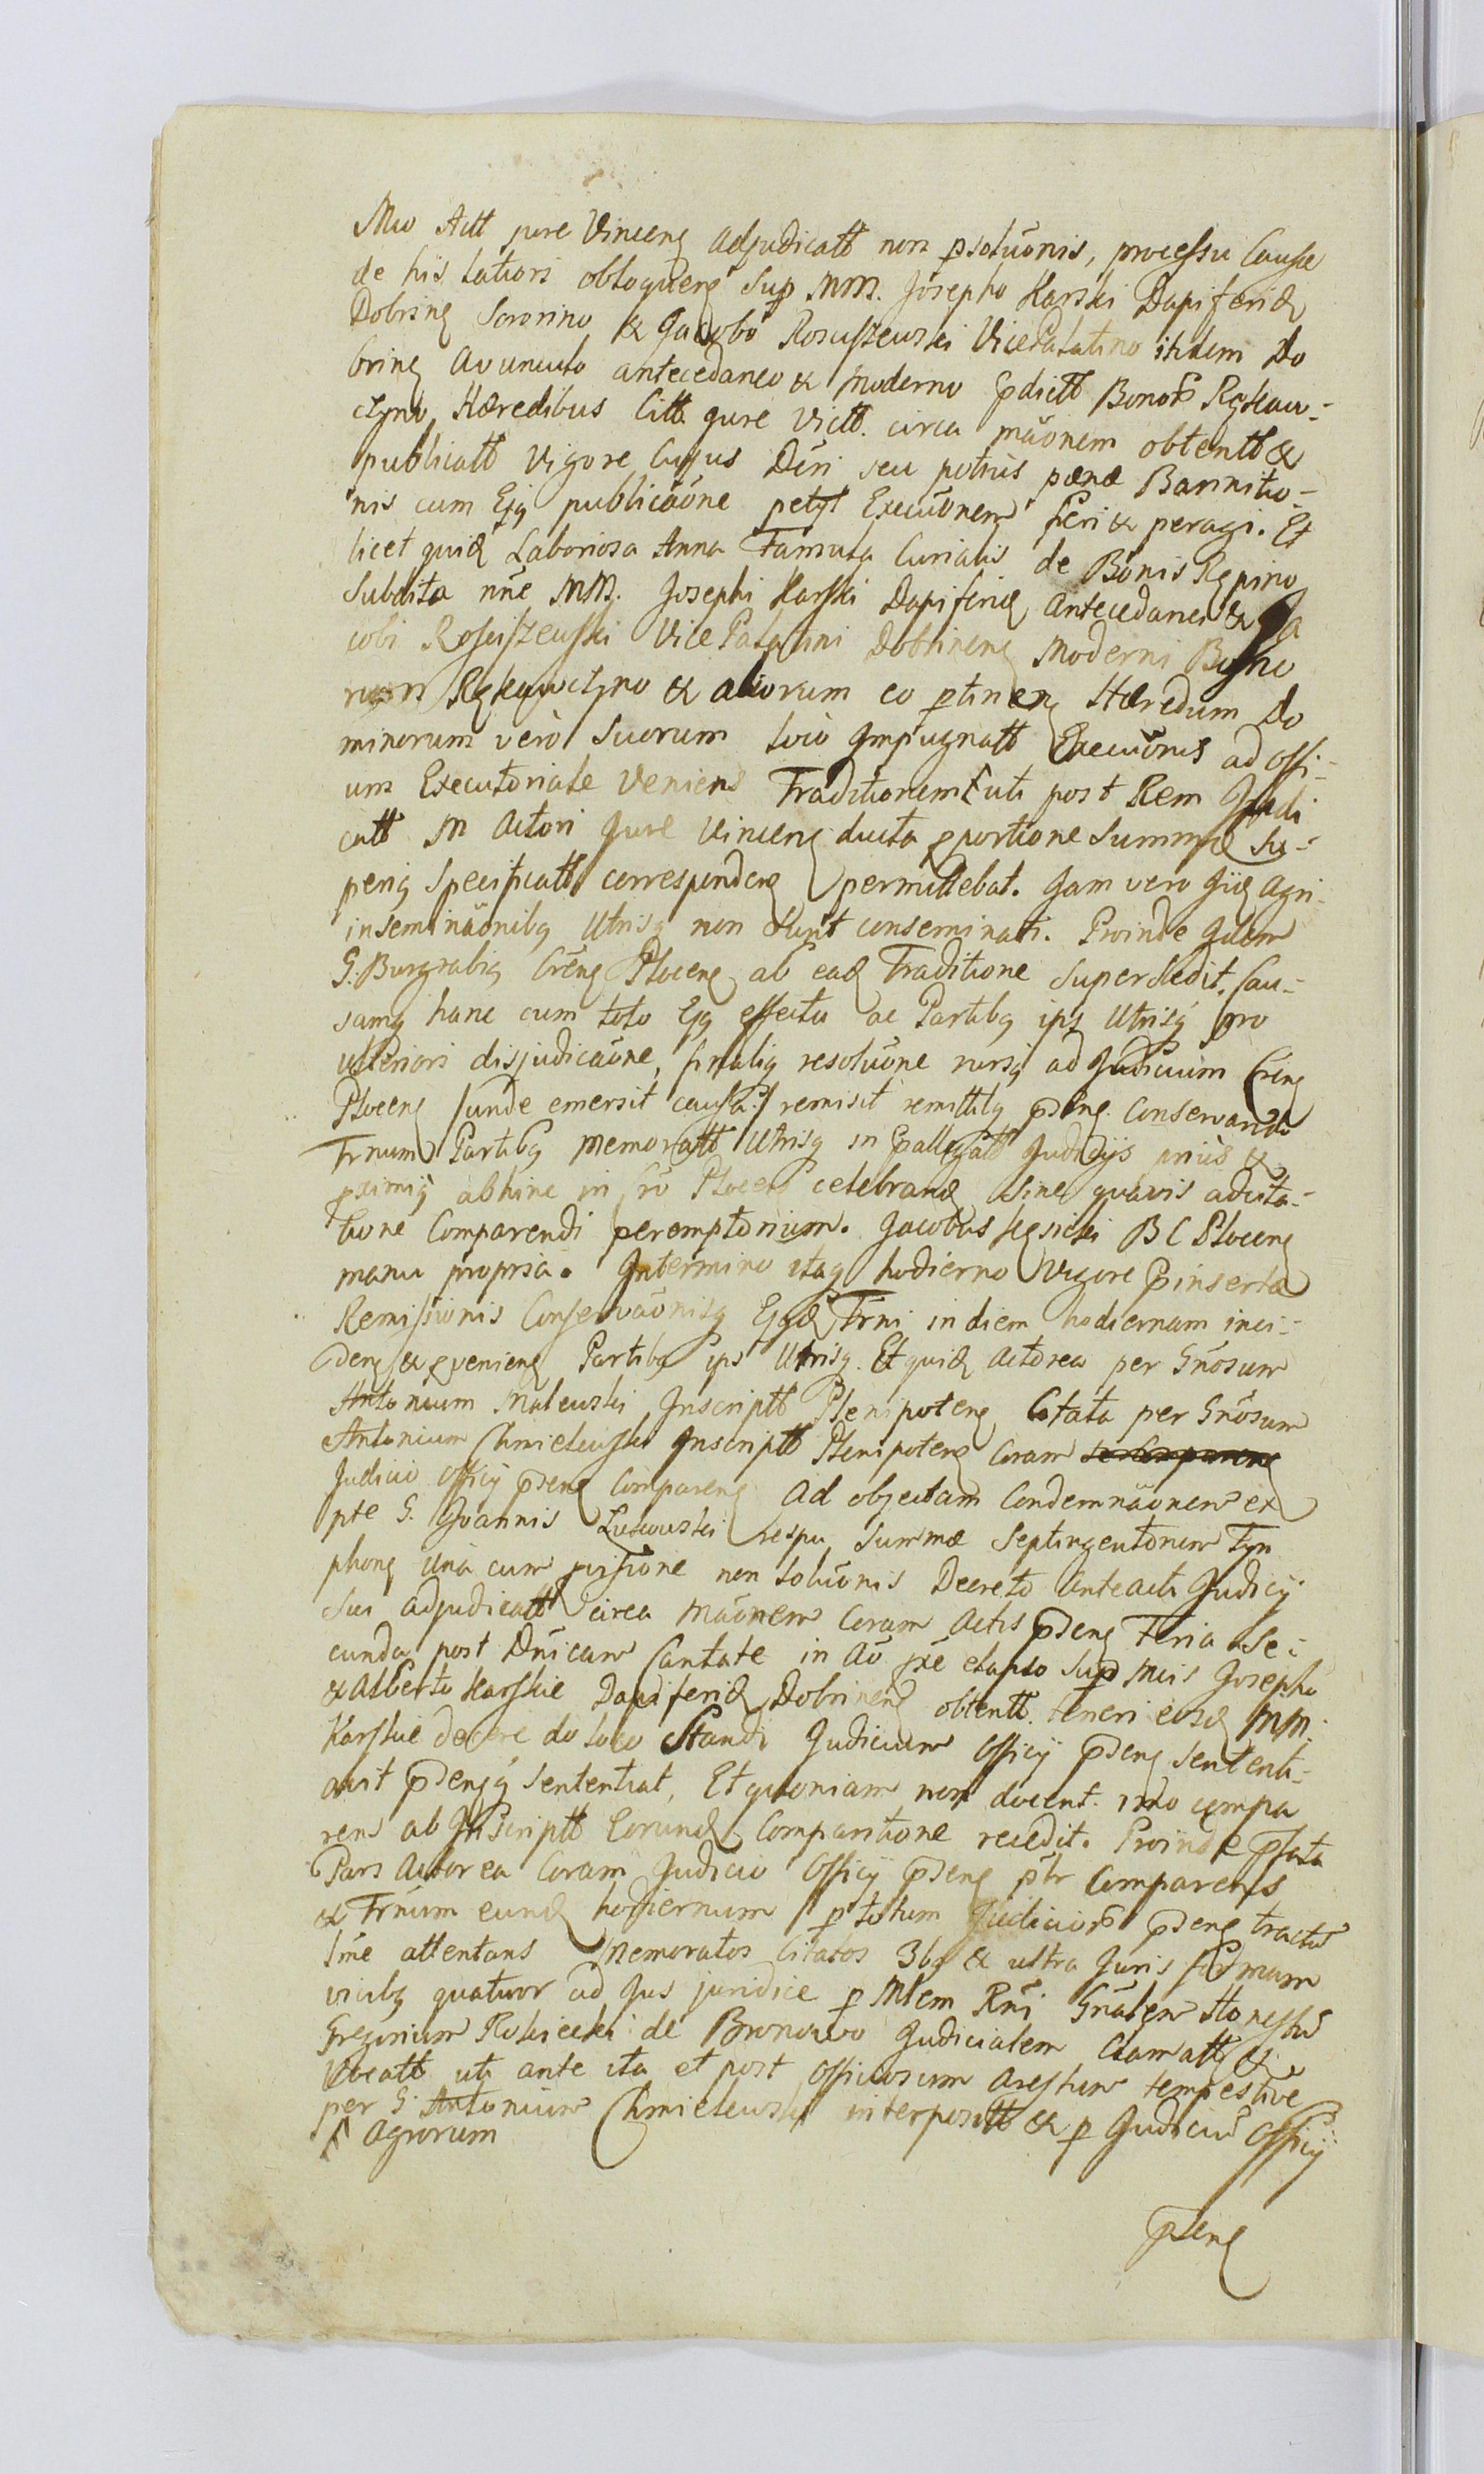 Mco Actt jure Vinceng adjudicatt non psolūonis, processu Causæ
de his latiori obloqueng Sup MM. Josepho Karski Dapiferid
Dobring Sororino & Jacobo Rosciszewski Vice Palatino itidem Do
bring avunculo antecedaneo & moderno pdictt Bonor Rękaw-
czyno Hæredibus Citt. jure victt. circa māonem obtentt &
publicatt vigore Cujus Dēri seu potius pænæ Bannitio-
nis cum Ejq publicāone petyt Execūonem fieri & peragi. Et
licet quid Laboriosa Anna Famula Curialis de Bonis Rępino
Subdita nñe MM. Josephi Karski Dapiferid antecedanei & Ja
cobi Rosciszewski Vice Palatini Dobrineng Moderni Bono
rum Rękawczyno & aliorum eo ptineng Hæredum Do
minorum vero Suorum loco Impugnatt Execūonis ad Offi-
um Executoriale veniens Traditionem ſ uti post Rem Judi
catt M Actori Jure vinceng ducta pportione Summæ Su-
perig Specificatt correspondeng permittebat. Jam vero Iid Agri
insemināonibq Utrisq non sunt conseminati. Proinde Idem
G. Burgrabiq Crēng Ploceng ab ead Traditione Supersedit. Cau-
samq hanc cum toto Ejq effectu ac Partibq ips Utrisq pro
ulteriori disjudicāone, finaliq resolūone rursq ad Judicium Creng
Ploceng /unde emersit causa:/ remisit remittitq pseng. Conservando
Trnum Partibq memoratt Utrisq in pallegatt Judicijs prius &
pximiq abhinc in Crō Ploceng celebrand Sine quavis adcita-
tione Comparendi peremptorium. Jacobus Kęsicki B C Ploceng
manu propria. In termino itaq hodierno vigore pinserta
Remissionis Conservāonisq Ejqd Trni in diem hodiernam inci-
deng & pvenieng Partibq ips Utrisq. Et quid Actorea per Gnosum
Antonium Malewski Inscriptt Plenipoteng Citata per Gnosum
Antonium Chmielewski Inscriptt Plenipoteng Coram
Judicio Officij pseng Compareng Ad objectam Condemnāonem ex
pte G. Joannis respu Summæ Septingentorum Tyn
phong una cum non solūonis Decreto anteacti Judicij
Sui adjudicatt circa māonem Coram Actis pseng Feria Se-
cunda post Dnicam Cantate in Aō pxe elapso Sup Mcis Josepho
& Alberto Karskie Dapiferid Dobrineng obtentt. teneri eosd MM.
Karskie docere de loco Standi Judicium Officij pseng Sententi-
avit psengq Sententiat, Et quoniam non docent. imo compa
rens ab Inscriptt Eorund Comparitione recedit. Proinde pfata
Pars Actorea Coram Judicio Officij pseng ptr Comparens
& Trnum eund hodiernum p totum Judicior pseng tractū
Ime attentans Memoratos Citatos 3bq & ultra Juris formam
vicibq quatuor ad Jus juridice p Mtem Rni Gnalem Honestū
Gregorium Rokicki de Bronowo Judicialem Clamatt &
vocatt uti ante ita et post Officiosum Arestum tempestive
per G. Antonium Chmielewski interpositt & p Judiciū Officij
ſ Agrorum
pseng